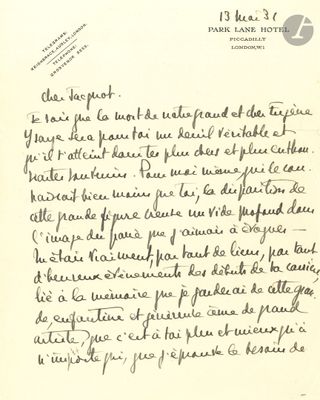 13 Mai 31
TELEGRAMS:
TELEPHONE:
GROSVENOR
PARK LANE HOTEL
PICCADILLY
LONDON, W.1
Cher Jacquot.
Je sais que la mort de notre grand et cher Eugène
Ysaye sera pour toi un deuil véritable et
qu'il t'atteint dans tes plus chers et plus enthou-
siastes souvenirs. Pour moi même qui le con-
naissait bien moins que toi, la disparition de
cette grande figure creuse un vide profond dans
l'image du passé que j'aimais à évoquer –
vraiment, par tant de liens, par tant
d'heureux évènements des débuts de ta carrière,
lié à la mémoire que je garderai de cette gran-
de, enfantine et généreuse âme de grand
artiste, que c'est à toi plus et mieux qu'à
n'importe qui, que j'éprouve le besoin de